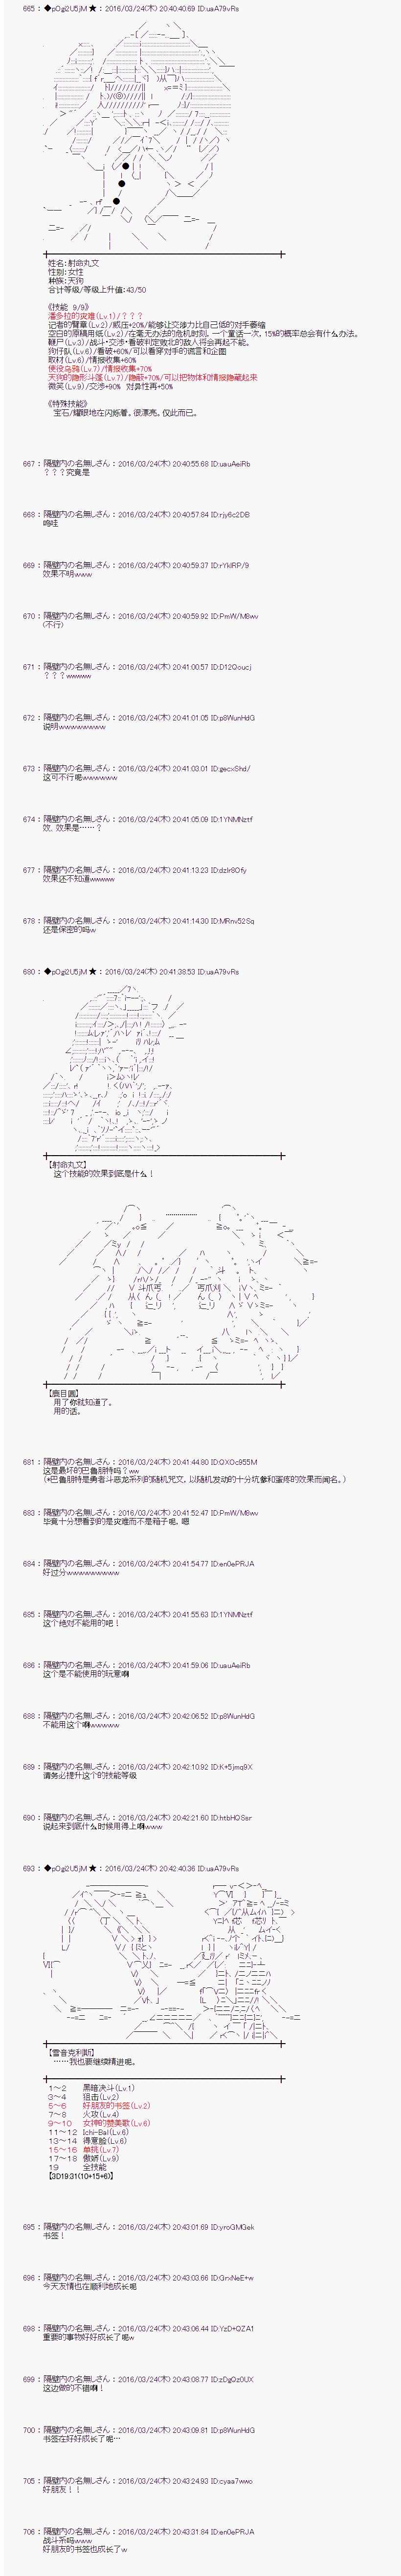 665 : ◆pOgi2U5jM ★ : 2016/03/24(木) 20:40:40.69 ID:uaA79vRs
姓名:射命丸文
性别:女性
种族:天狗
合计等级/等级上升值:43/50
《技能 9/9》
潘多拉的灾难(Lv.1)/？？？
记者的臂章(Lv.2)/威压+20%/能够让交涉力比自己低的对手萎缩
空白的原稿用纸(Lv.2)/在毫无办法的危机时刻，一个童话一次，15%的概率总会有什么办法。
鞭尸(Lv.3)/战斗·交涉·看破判定败北的敌人将会再起不能。
狗仔队(Lv.6)/看破+60%/可以看穿对手的谎言和企图
取材(Lv.6)/情报收集+60%
使役乌鸦(Lv.7)/情报收集+70%
天狗的隐形斗篷(Lv.7)/隐蔽+70%/可以把物体和情报隐藏起来
微笑(Lv.9)/交涉+90% 对异性再+50%
《特殊技能》
宝石/耀眼地在闪烁着。很漂亮。仅此而已。
667 : 隔壁内の名無しさん : 2016/03/24(木) 20:40:55.68 ID:uauAeiRb
？？？究竟是
668 : 隔壁内の名無しさん : 2016/03/24(木) 20:40:57.84 ID:rjy6c2DB
呜哇
669 : 隔壁内の名無しさん : 2016/03/24(木) 20:40:59.37 ID:rYkIRP/9
效果不明www
670 : 隔壁内の名無しさん : 2016/03/24(木) 20:40:59.92 ID:PmW/M8wv
(不行)
671 : 隔壁内の名無しさん : 2016/03/24(木) 20:41:00.57 ID:D12Qoucj
？？？wwwww
672 : 隔壁内の名無しさん : 2016/03/24(木) 20:41:01.05 ID:p8WunHdG
说明wwwwwwwww
673 : 隔壁内の名無しさん : 2016/03/24(木) 20:41:03.01 ID:gecxShd/
这可不行呢wwwwww
674 : 隔壁内の名無しさん : 2016/03/24(木) 20:41:05.09 ID:1YNMNztf
效、效果是……？
677 : 隔壁内の名無しさん : 2016/03/24(木) 20:41:13.23 ID:dzIr8Ofy
效果还不知道wwwww
678 : 隔壁内の名無しさん : 2016/03/24(木) 20:41:14.30 ID:MRnv52Sq
还是保密的吗w
680 : ◆pOgi2U5jM ★ : 2016/03/24(木) 20:41:38.53 ID:uaA79vRs
【射命丸文】
这个技能的效果到底是什么！
【鹿目圆】
用了你就知道了。
用的话。
681 : 隔壁内の名無しさん : 2016/03/24(木) 20:41:44.80 ID:QXOc955M
这是最坏的巴鲁朋特吗？ww
(*巴鲁朋特是勇者斗恶龙系列的随机咒文，以随机发动的十分坑爹和蛋疼的效果而闻名。)
683 : 隔壁内の名無しさん : 2016/03/24(木) 20:41:52.47 ID:PmW/M8wv
毕竟十分想看到的是灾难而不是箱子呢，嗯
684 : 隔壁内の名無しさん : 2016/03/24(木) 20:41:54.77 ID:en0ePRJA
好过分wwwwwwwww
685 : 隔壁内の名無しさん : 2016/03/24(木) 20:41:55.63 ID:1YNMNztf
这个绝对不能用的吧！
686 : 隔壁内の名無しさん : 2016/03/24(木) 20:41:59.06 ID:uauAeiRb
这个是不能使用的玩意啊
688 : 隔壁内の名無しさん : 2016/03/24(木) 20:42:06.52 ID:p8WunHdG
不能用这个啊wwwww
689 : 隔壁内の名無しさん : 2016/03/24(木) 20:42:10.92 ID:K+5jmq9X
请务必提升这个的技能等级
690 : 隔壁内の名無しさん : 2016/03/24(木) 20:42:21.60 ID:htbHOSsr
说起来到底什么时候用得上啊www
693 : ◆pOgi2U5jM ★ : 2016/03/24(木) 20:42:40.36 ID:uaA79vRs
【雪音克利斯】
……我也要继续精进呢。
1～2 黑暗决斗(Lv.1)
3～4 狙击(Lv.2)
5～6 好朋友的书签(Lv.2)
7～8 火攻(Lv.4)
9～10 女神的赞美歌(Lv.6)
11～12 Ichi-Bal(Lv.6)
13～14 得意脸(Lv.6)
15～16 单挑(Lv.7)
17～18 傲娇(Lv.9)
19 全技能
【3D19:31(10+15+6)】
695 : 隔壁内の名無しさん : 2016/03/24(木) 20:43:01.69 ID:yroGMGek
书签！
696 : 隔壁内の名無しさん : 2016/03/24(木) 20:43:03.66 ID:GrxNeE+w
今天友情也在顺利地成长呢
698 : 隔壁内の名無しさん : 2016/03/24(木) 20:43:06.44 ID:YzD+QZA1
重要的事物好好成长了呢w
699 : 隔壁内の名無しさん : 2016/03/24(木) 20:43:08.77 ID:zDgQz0UX
这边做的不错啊！
700 : 隔壁内の名無しさん : 2016/03/24(木) 20:43:09.81 ID:p8WunHdG
书签在好好成长了呢…
705 : 隔壁内の名無しさん : 2016/03/24(木) 20:43:24.93 ID:cyaa7wwo
好朋友！！
706 : 隔壁内の名無しさん : 2016/03/24(木) 20:43:31.84 ID:en0ePRJA
战斗系吗www
好朋友的书签也成长了w